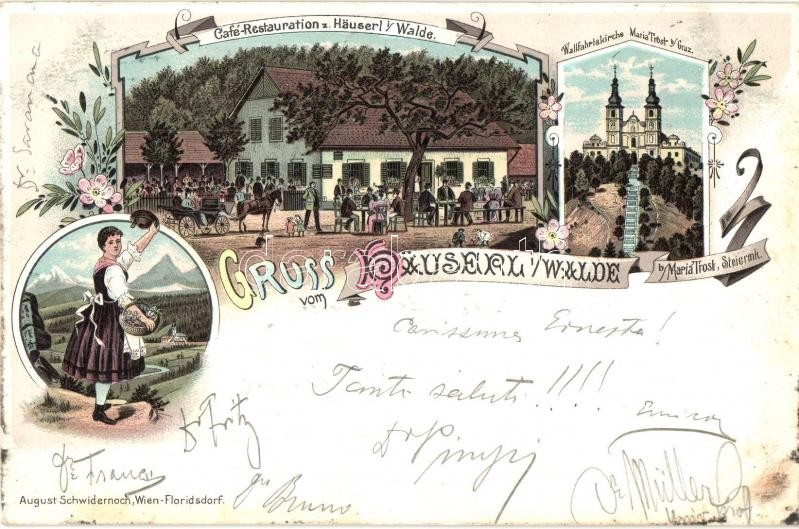 Café-Restauration z. Häuserl i/ Walde.
Wallfahrtskirche Maria Trost b/ Graz.
GRUSS vom HÄUSERL i/ WALDE
b/ Maria Trost, Steierm.
Carissima Ernesta!
Tanti saluti!!!!
Dr Fritz
Bruno
Dr Müller
August Schwidernoch, Wien-Floridsdorf.